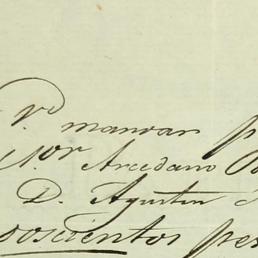 Pr. mandar p
Nor Arcediano D
D. Agustin
doscientos pes